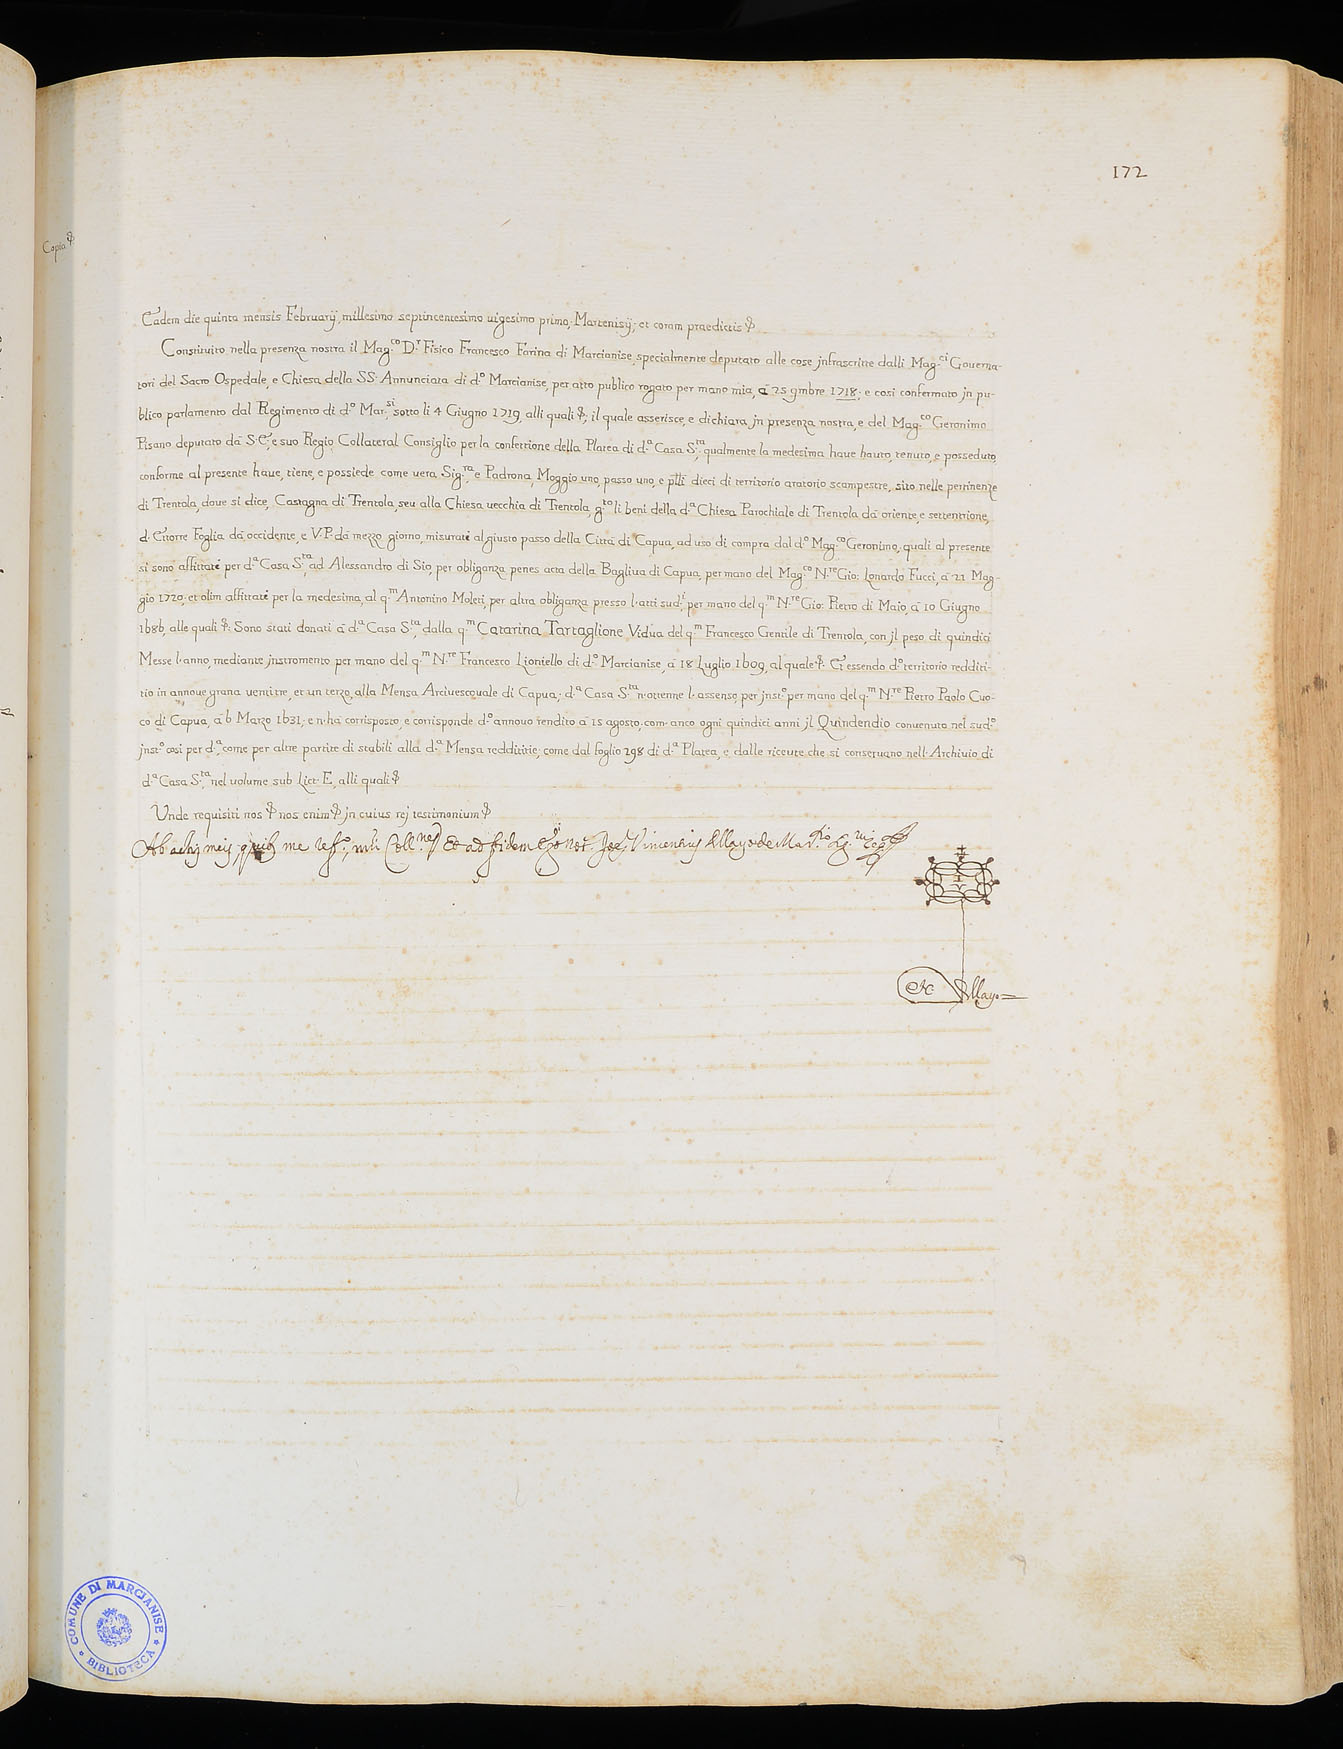 172
Copia
Eadem die quinta mensis Februarÿ, millesimo septincentesimo uigesimo primo, Martenisÿ; et coram praedictis &
Constituito nella presenza nostra il Mag.co D.r Fisico Francesco Farina di Marcianise, specialmente deputato alle cose jnfrascritte dalli Mag.ci Governa-
tori del Sacro Ospedale, e Chiesa della SS: Annunciata di d.o Marcianise, per atto publico rogato per mano mia, à 25 9mbre 1718; e così confermato jn pu-
blico parlamento dal Regimento di d.o Mar.si sotto li 4 Giugno 1719, alli quali &; il quale asserisce, e dichiara jn presenza nostra, e del Mag.co Geronimo
Pisano deputato da S.E, e suo Regio Collateral Consiglio per la confettione della Platea di d.a Casa S.ta, qualmente la medesima have hauto, tenuto, e posseduto,
conforme al presente have, tiene, e possiede come vera Sig.ra, e Padrona, Moggio uno, passo uno, e p̃lli dieci di territorio aratorio scampestre, sito nelle pertinenze
di Trentola, dove si dice, Castagna di Trentola, seu alla Chiesa vecchia di Trentola, g.to li beni della d.a Chiesa Parochiale di Trentola da oriente, e settentrione,
d. Ettorre Foglia da occidente, e V.P. da mezzo giorno, misurati al giusto passo della Città di Capua, ad uso di compra dal d.o Mag.co Geronimo, quali al presente
si sono affittati per d.a Casa S.ta, ad Alessandro di Sio, per obliganza penes acta della Bagliva di Capua, per mano del Mag.co N.re Gio: Lonardo Fucci, à 21 Mag-
gio 1720; et olim affittati per la medesima, al q.m Antonino Moleti, per altra obliganza presso l'atti sud.i, per mano del q.m N.re Gio: Pietro di Maio, à 10 Giugno
1686, alle quali &: Sono stati donati à d.a Casa S.ta, dalla q.m Catarina Tartaglione Vidua del q.m Francesco Gentile di Trentola, con jl peso di quindici
Messe l'anno, mediante jnstromento per mano del q.m N.re Francesco Lioniello di d.o Marcianise, à 18 Luglio 1609, al quale &. Et essendo d.o territorio redditi-
tio in annoue grana ventitre, et un terzo, alla Mensa Arcivescovale di Capua; d.a Casa S.ta n'ottenne l'assenso, per jnst.o per mano del q.m N.re Pietro Paolo Cuo-
co di Capua, à 6 Marzo 1631; e n'ha corrisposto, e corrisponde d.o annouo rendito à 15 agosto, com'anco ogni quindici anni jl Quindendio convenuto nel sud.o
jnst.o così per d.a, come per altre partite di stabili alla d.a Mensa reddititie; come dal foglio 298 di d.a Platea, e dalle ricevute che si conservano nell'Archivio di
d.a Casa S.ta, nel volume sub Lict. E, alli quali &
Unde requisiti nos & nos enim & jn cuius rej testimonium &
Ab actis meis, me Et ad fidem Ego Not. Vincentius Allayo de Mar.
Allayo
COMUNE DI MARCIANISE
BIBLIOTECA